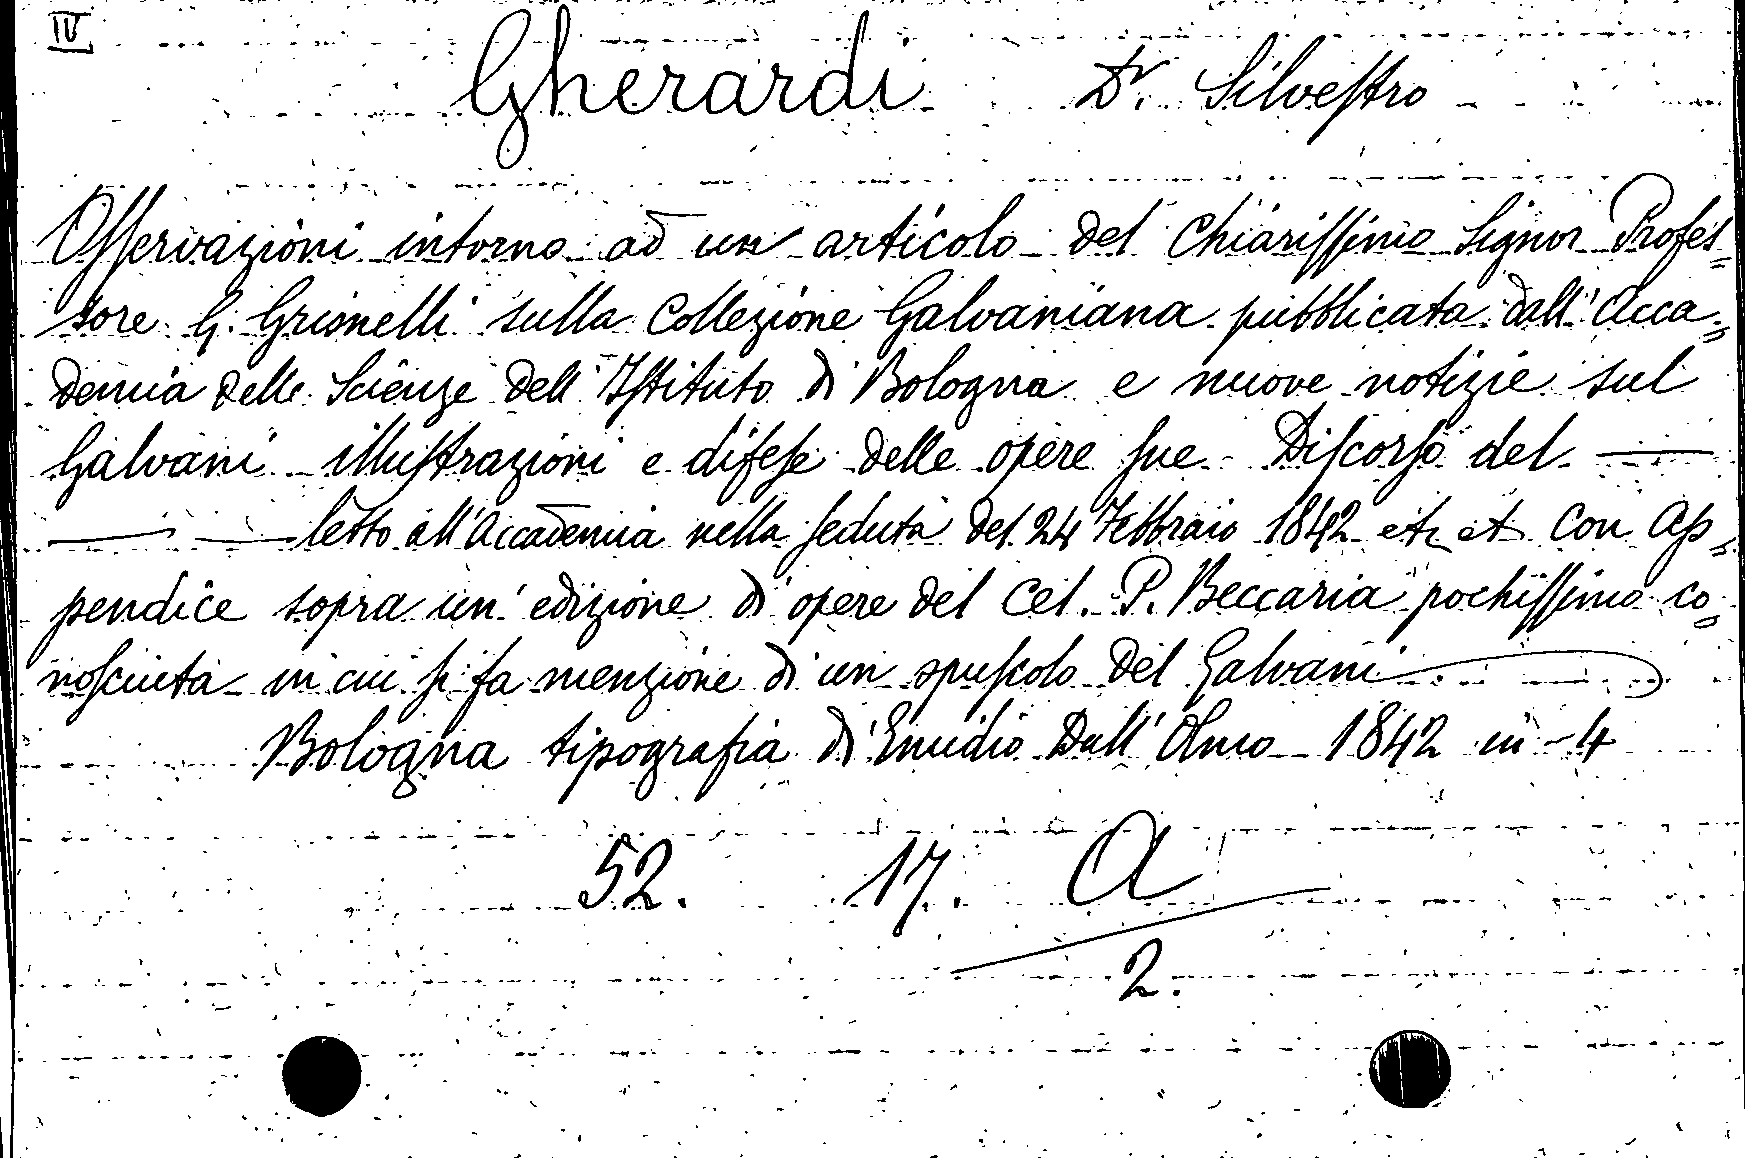 IV
Gherardi Dr. Silvestro
Osservazioni intorno ad un articolo del Chiarissimo Signor Profes=
sore G. Grimelli sulla Collezione Galvaniana pubblicata dall'Acca=
demia delle Scienze dell'Istituto di Bologna e nuove notizie sul
Galvani illustrazioni e difese delle opere sue. Discorso del —
— — letto all'Accademia nella seduta del 24 Febbraio 1842 etc et Con Ap=
pendice sopra un'edizione di opere del Cel. P. Beccaria pochissimo co=
nosciuta in cui si fa menzione di un opuscolo del Galvani
Bologna tipografia di Emidio Dall'Olmo 1842 in-4
52. 17. A
2.